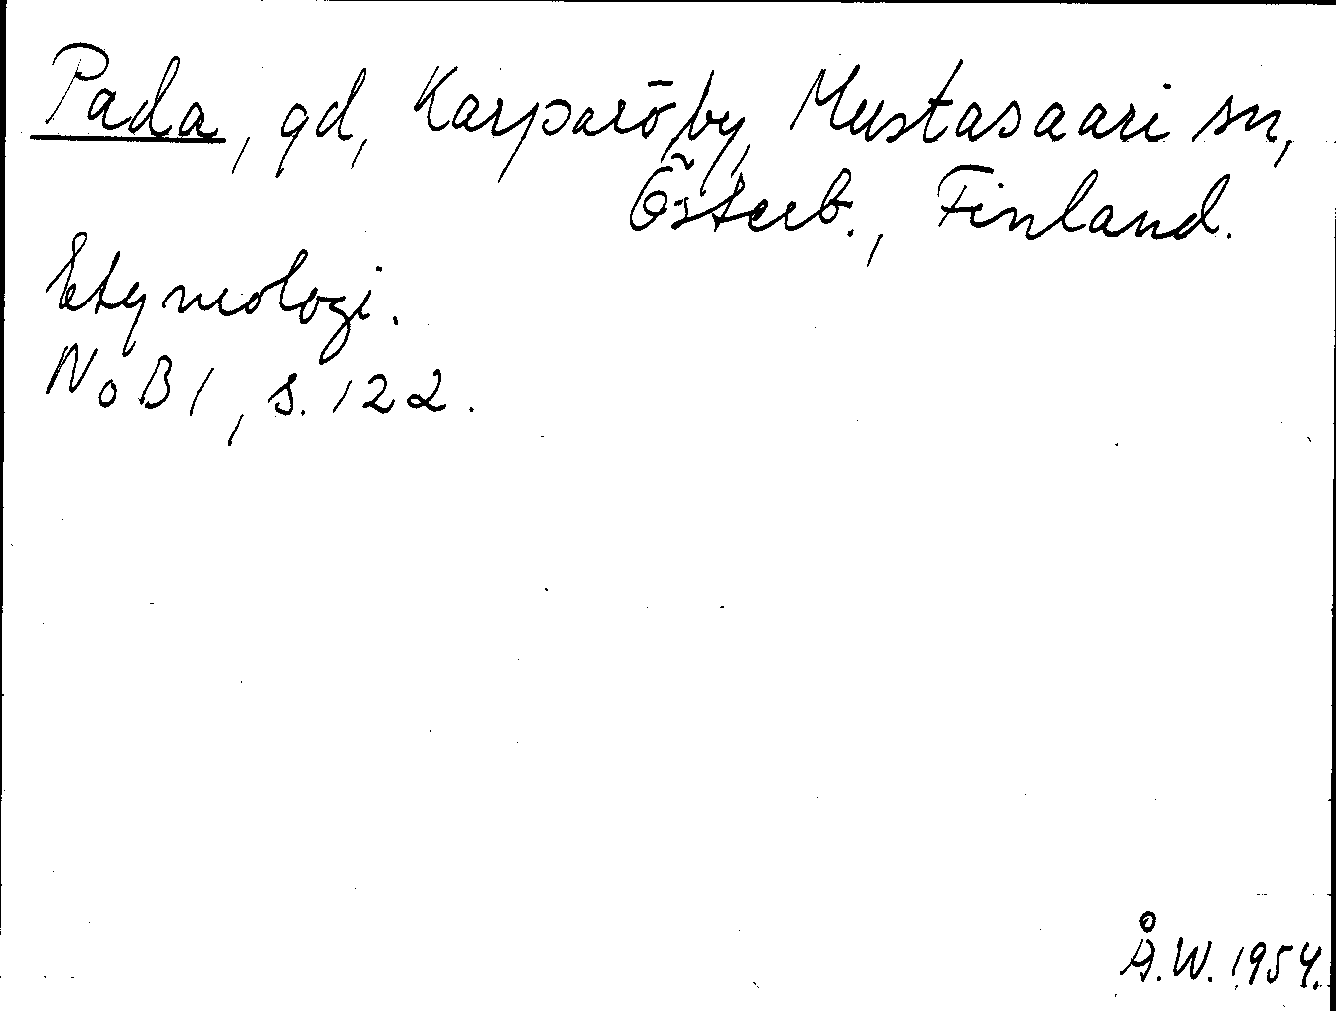 Pada, gd, Karparö by, Mustasaari sn,
Österb., Finland.
Etymologi.
NoB 1, s. 122.
Å.W. 1954.